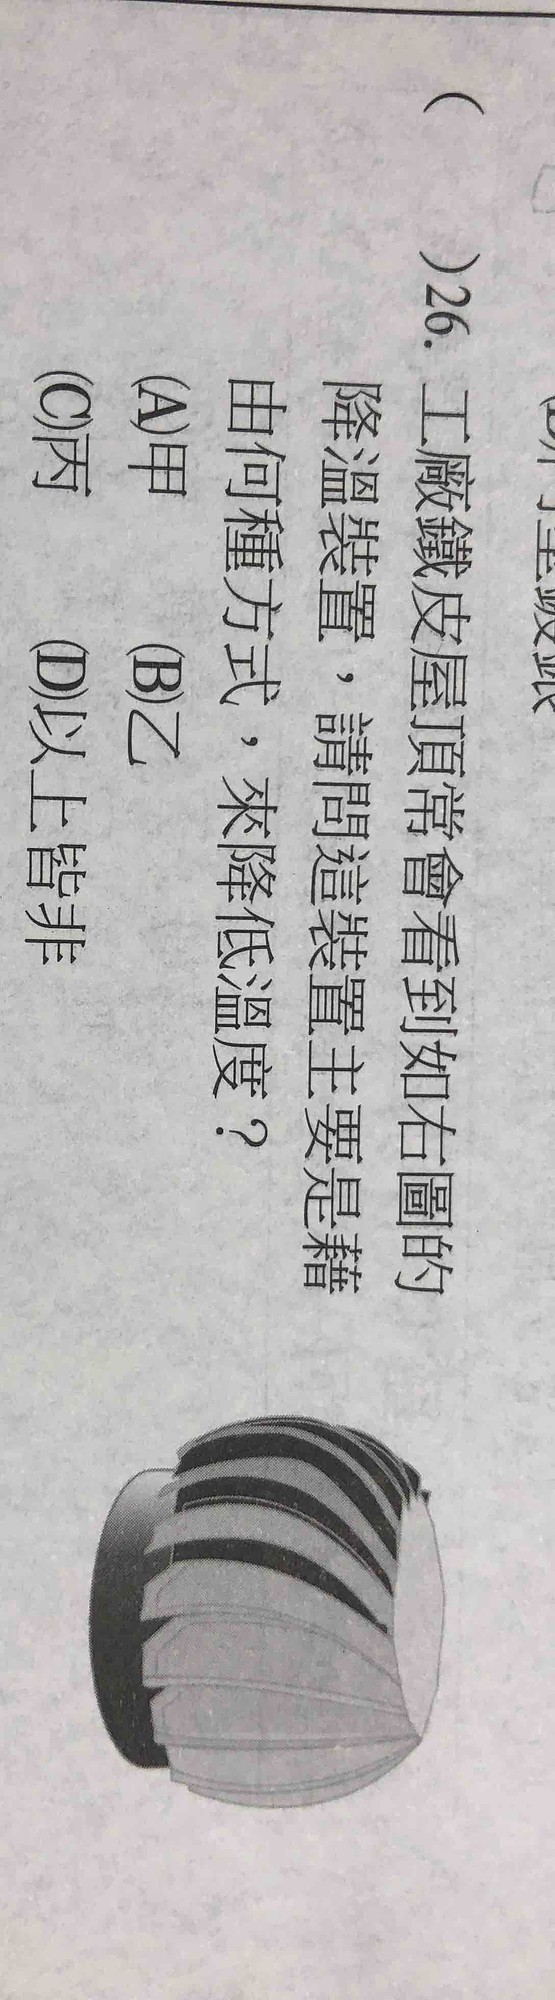 (　　)26. 工廠鐵皮屋頂常會看到如右圖的
降溫裝置，請問這裝置主要是藉
由何種方式，來降低溫度？
(A)甲　　(B)乙
(C)丙　　(D)以上皆非